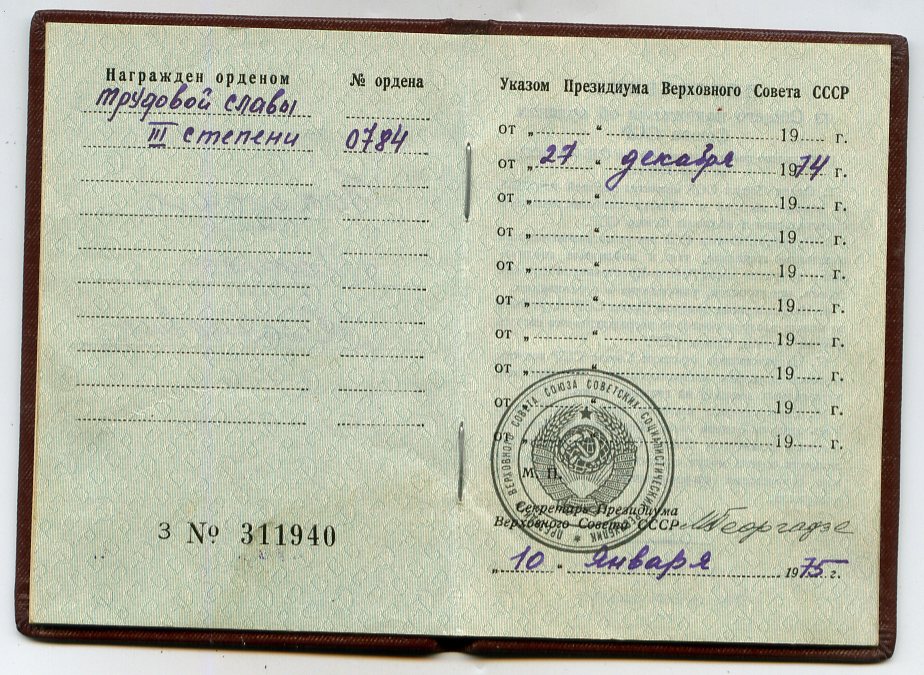 Награжден орденом
№ ордена
Трудовой славы
III степени
0784
З № 311940
Указом Президиума Верховного Совета СССР
от „ “ 19 г.
от „ 27 “ декабря 1974 г.
от „ “ 19 г.
от „ “ 19 г.
от „ “ 19 г.
от „ “ 19 г.
от „ “ 19 г.
от „ “ 19 г.
от „ “ 19 г.
от „ “ 19 г.
М. П.
ВЕРХОВНОГО СОВЕТА СОЮЗА СОВЕТСКИХ СОЦИАЛИСТИЧЕСКИХ
Секретарь Президиума
Верховного Совета СССР
МГеоргадзе
„ 10 “ Января 1975 г.